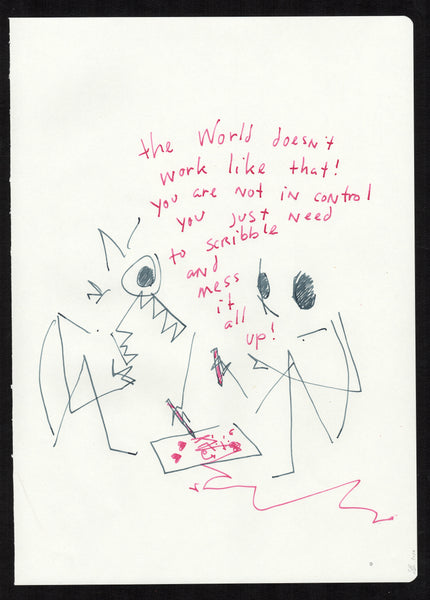 the World doesn't
work like that!
you are not in control
you just need
to scribble
and
mess
it
all
up!